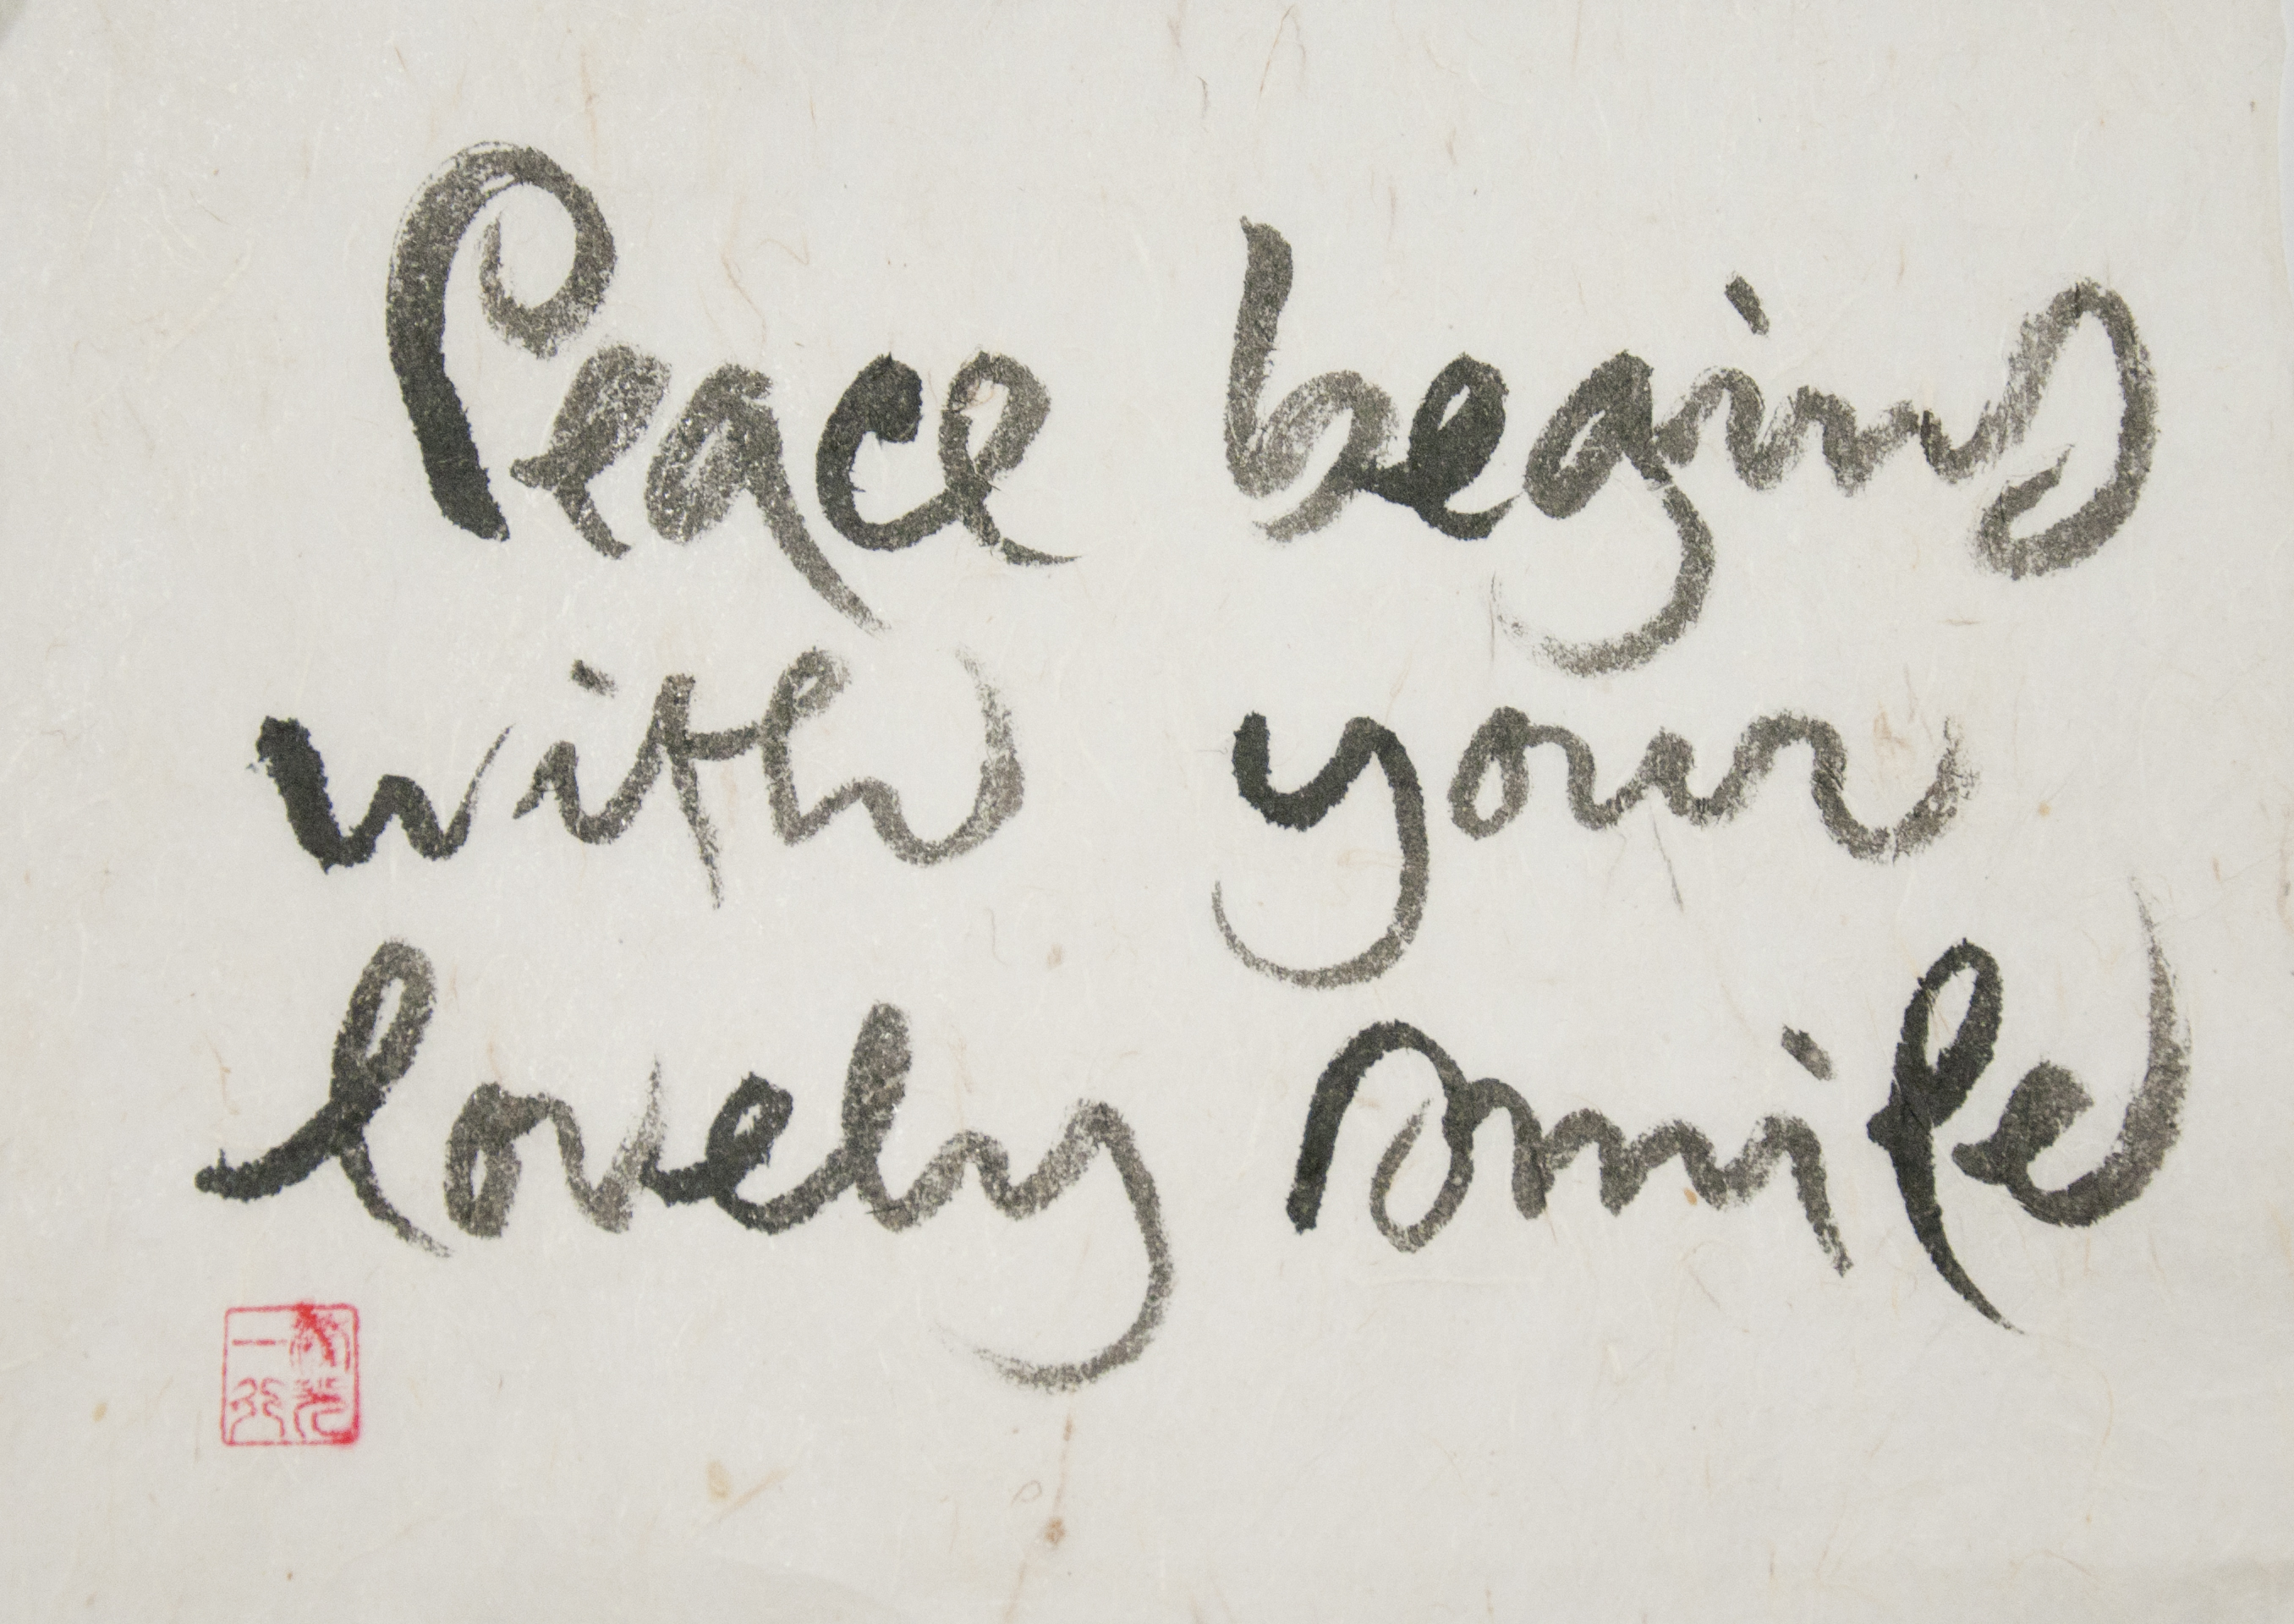 Peace begins
with your
lovely smile
一行